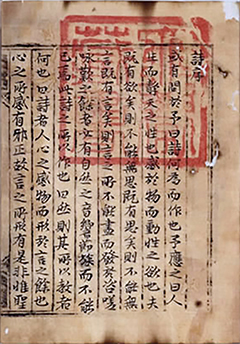 詩序
或有問於予曰詩何為而作也予應之曰人
生而靜天之性也感於物而動性之欲也夫
既有欲矣則不能無思既有思矣則不能無
言既有言矣則言之所不能盡而發於咨嗟
咏歎之餘者必有自然之音響節族而不能
已焉此詩之所以作也曰然則其所以教者
何也曰詩者人心之感物而形於言之餘也
心之所感有邪正故言之所形有是非惟聖